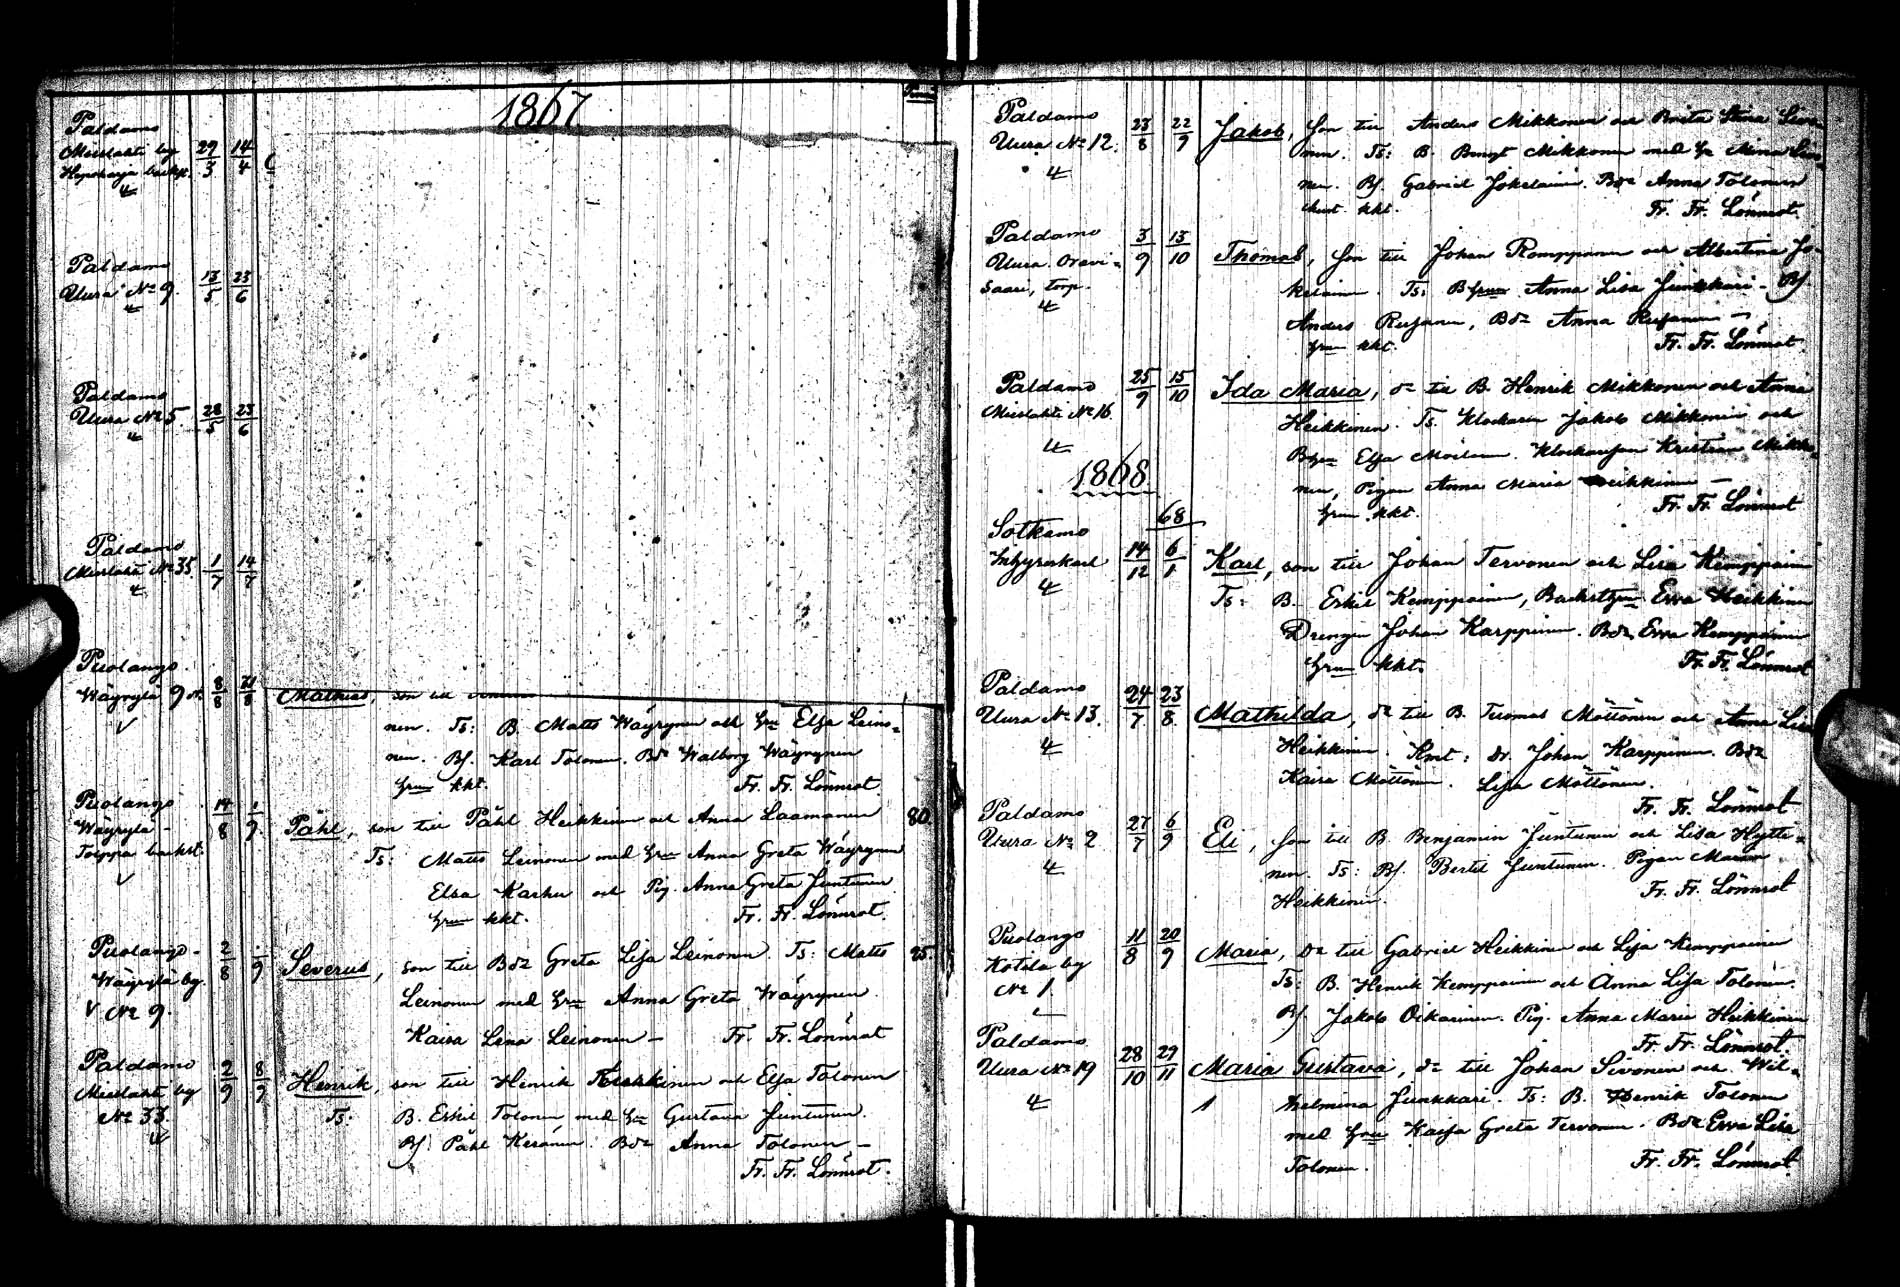 1867
Paldamo
Mieslahti by 29/3 14/4
4
Paldamo
Uura No 9. 13/5 23/6
4
Paldamo
Uura No 5 28/5 23/6
4
Paldamo
Mieslahti No 35. 1/7 14/7
4
Puolango
Wäyrylä 9 8/8 21/8 Mathias, son till
nen. Ts: B. Matts Wäyrynen och hru Elsa Leino-
nen. Bs. Karl Tolonen. Bdr Walborg Wäyrynen
hru kkt. Fr. Fr. Lönnrot
Puolango 14/8 1/9 Påhl, son till Påhl Heikkinen och Anna Laamanen 80.
Wäyrylä -
Toippa backst. Ts: Matts Leinonen med hru Anna Greta Wäyrynen
V Elsa Karhu och Pig. Anna Greta Juntunen
hru kkt. Fr. Fr. Lönnrot.
Puolango - 2/8 /9 Severus, son till Bdr Greta Lisa Leinonen. Ts: Matts 25.
Wäyrylä by.
V No 9. Leinonen med hru Anna Greta Wäyrynen.
Kaisa Lena Leinonen - Fr. Fr. Lönnrot
Paldamo 2/9 8/9 Henrik, son till Henrik och Elsa Tolonen
Mieslahti by
No 33. Ts: B. Eskil Tolonen med hru Gustava Juntunen.
4 Bs. Påhl Keränen. Bdr Anna Tolonen -
Fr. Fr. Lönnrot.
Paldamo 23/8 22/9 Jakob, son till Anders Mikkonen och Brita Stina
Uura No 12.
4 nen. Ts: B. Bengt Mikkonen med hru
nen. Bs. Gabriel Jokelainen. Bdr Anna Tolonen
kkt. Fr. Fr. Lönnrot.
Paldamo 3/9 13/10 Thomas, son till Johan Romppanen och Albertina Jo-
Uura. Oravi-
saari, torp. kelainen. Ts: B hru Anna Lisa Junkkari - Bs.
4 Anders , Bdr Anna
hru kkt. Fr. Fr. Lönnrot.
Paldamo 25/9 15/10 Ida Maria, dr till B. Henrik Mikkonen och Anna
Mieslahti No 16.
Heikkinen. Ts. Klockaren Jakob Mikkonen och
4 Bhru Elsa Moilanen. Kristian Mikko-
nen, Pigan Anna Maria Heikkinen -
hru kkt. Fr. Fr. Lönnrot
1868.
68
Sotkamo
14/12 6/1 Karl, son till Johan Tervonen och Lisa Kemppainen
4 Ts: B. Eskil Kemppainen, Ewa Heikkinen
Drengen Johan Karppinen. Bdr Ewa Kemppainen
hru kkt. Fr. Fr. Lönnrot
Paldamo 24/7 23/8 Mathilda, dr till B. Tuomas Möttönen och Anna Lisa
Uura No 13.
4 Heikkinen. Kmt: Dr. Johan Karppinen. Bdr
Kaisa Möttönen. Lisa Möttönen.
Fr. Fr. Lönnrot
Paldamo 27/7 6/9 Eli, son till B. Benjamin Juntunen och Lisa Hytti-
Uura No 2
4 nen. Ts: Bs. Bertil Juntunen. Pigan Maria
Heikkinen. Fr. Fr. Lönnrot
Puolango 11/8 20/9 Maria, dr till Gabriel Heikkinen och Lisa Kemppainen
Kotila by
No 1. Ts: B. Henrik Kemppainen och Anna Lisa Tolonen.
Bs. Jakob Oikarinen. Pig. Anna Maria Heikkinen
Fr. Fr. Lönnrot.
Paldamo 28/10 29/11 Maria Gustava, dr till Johan Sivonen och Wil-
Uura No 19
4 1 helmina Junkkari. Ts: B. Henrik Tolonen
med hru Kaisa Greta Tervonen. Bdr Ewa Lisa
Tolonen. Fr. Fr. Lönnrot.